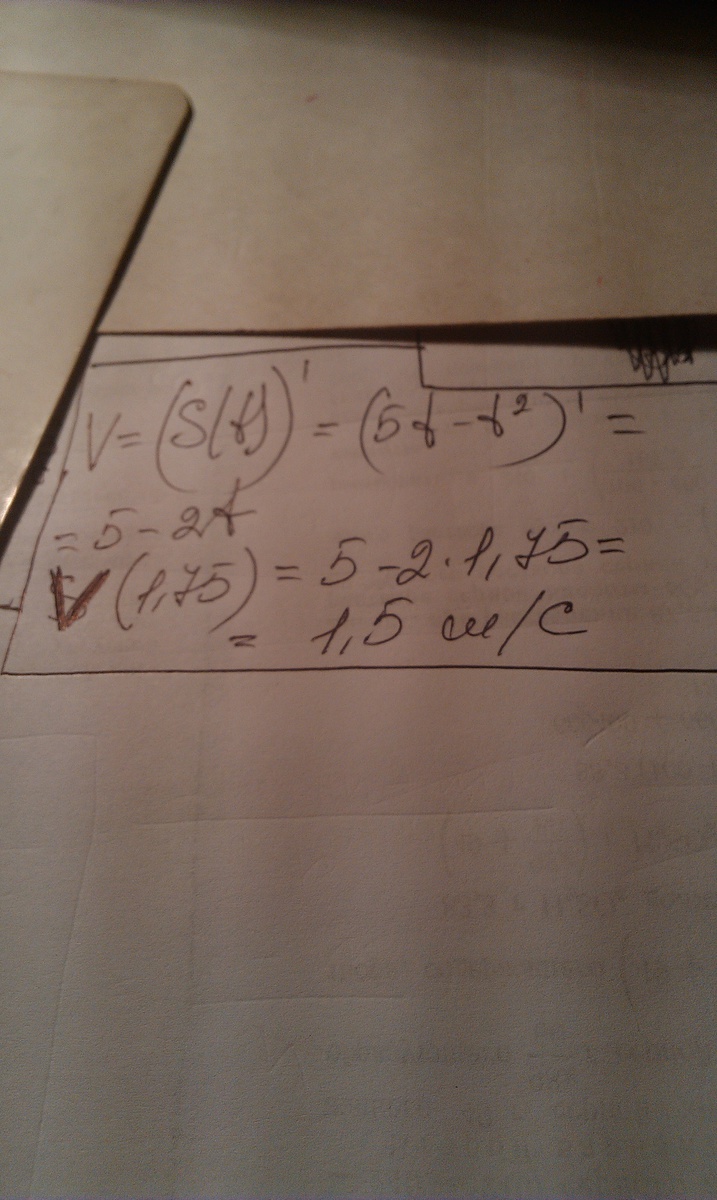 V = (S(t))' = (5t - t²)' =
= 5 - 2t
V (1,75) = 5 - 2 · 1,75 =
= 1,5 м/с